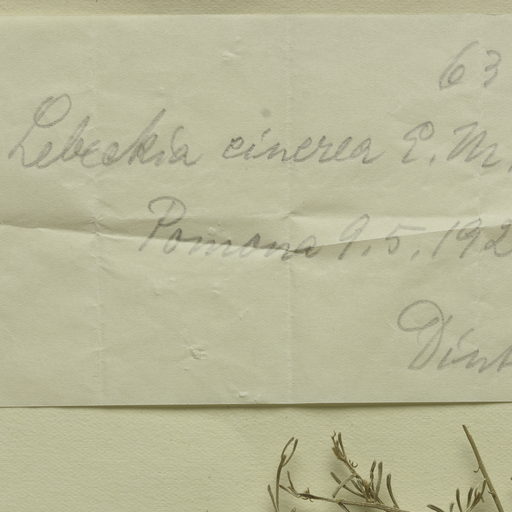 63
Lebeckia cinerea E. M.
Pomona 9.5.192
Dint